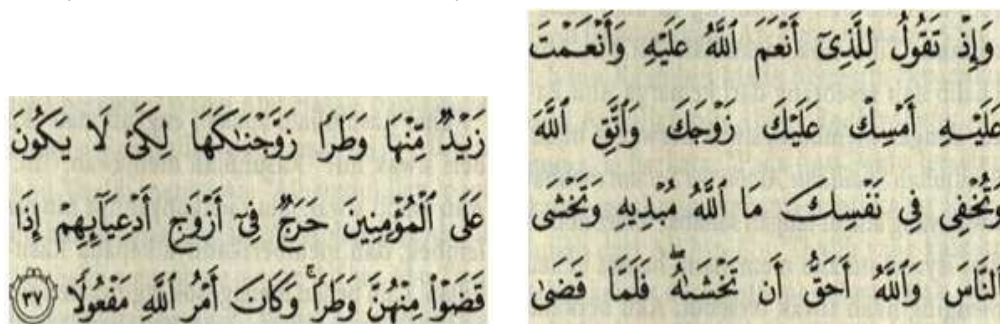 وَإِذْ تَقُولُ لِلَّذِىٓ أَنْعَمَ ٱللَّهُ عَلَيْهِ وَأَنْعَمْتَ
عَلَيْهِ أَمْسِكْ عَلَيْكَ زَوْجَكَ وَٱتَّقِ ٱللَّهَ
وَتُخْفِى فِى نَفْسِكَ مَا ٱللَّهُ مُبْدِيهِ وَتَخْشَى
ٱلنَّاسَ وَٱللَّهُ أَحَقُّ أَن تَخْشَىٰهُ ۖ فَلَمَّا قَضَىٰ
زَيْدٌ مِّنْهَا وَطَرًا زَوَّجْنَٰكَهَا لِكَىْ لَا يَكُونَ
عَلَى ٱلْمُؤْمِنِينَ حَرَجٌ فِىٓ أَزْوَٰجِ أَدْعِيَآئِهِمْ إِذَا
قَضَوْا۟ مِنْهُنَّ وَطَرًا ۚ وَكَانَ أَمْرُ ٱللَّهِ مَفْعُولًا ٣٧